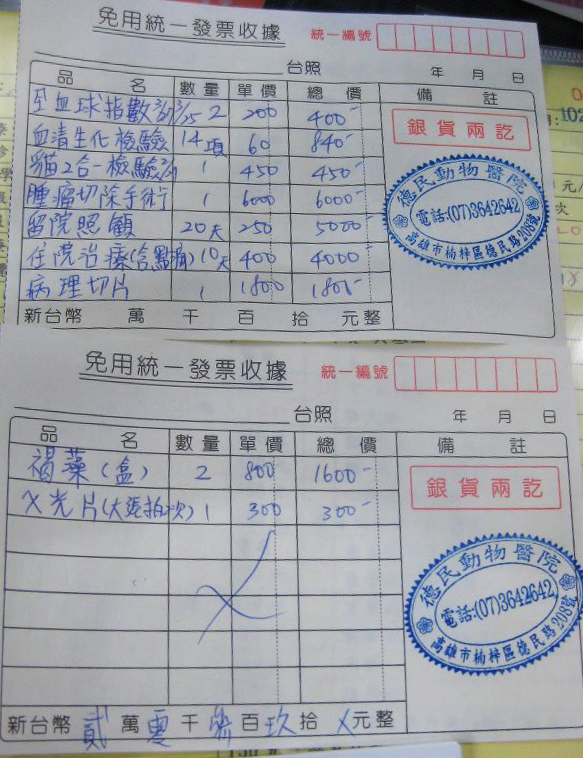 免用統一發票收據 統一編號
台照 年 月 日
品 名 數量 單價 總 價 備 註
全血球指數 2 200 400-
血清生化檢驗 14項 60 840-
貓2合一檢驗 1 450 450-
腫瘤切除手術 1 6000 6000-
留院照顧 20天 250 5000-
住院治療(含點滴) 10天 400 4000-
病理切片 1 1800 1800-
新台幣 萬 千 百 拾 元整
銀貨兩訖
德民動物醫院
電話:(07)3642642
高雄市楠梓區德民路208號
免用統一發票收據 統一編號
台照 年 月 日
品 名 數量 單價 總 價 備 註
褐藥(盒) 2 800 1600-
X光片(大張拍 次) 1 300 300-
新台幣 貳 萬 零 千 參 百 玖 拾 X 元整
銀貨兩訖
德民動物醫院
電話:(07)3642642
高雄市楠梓區德民路208號